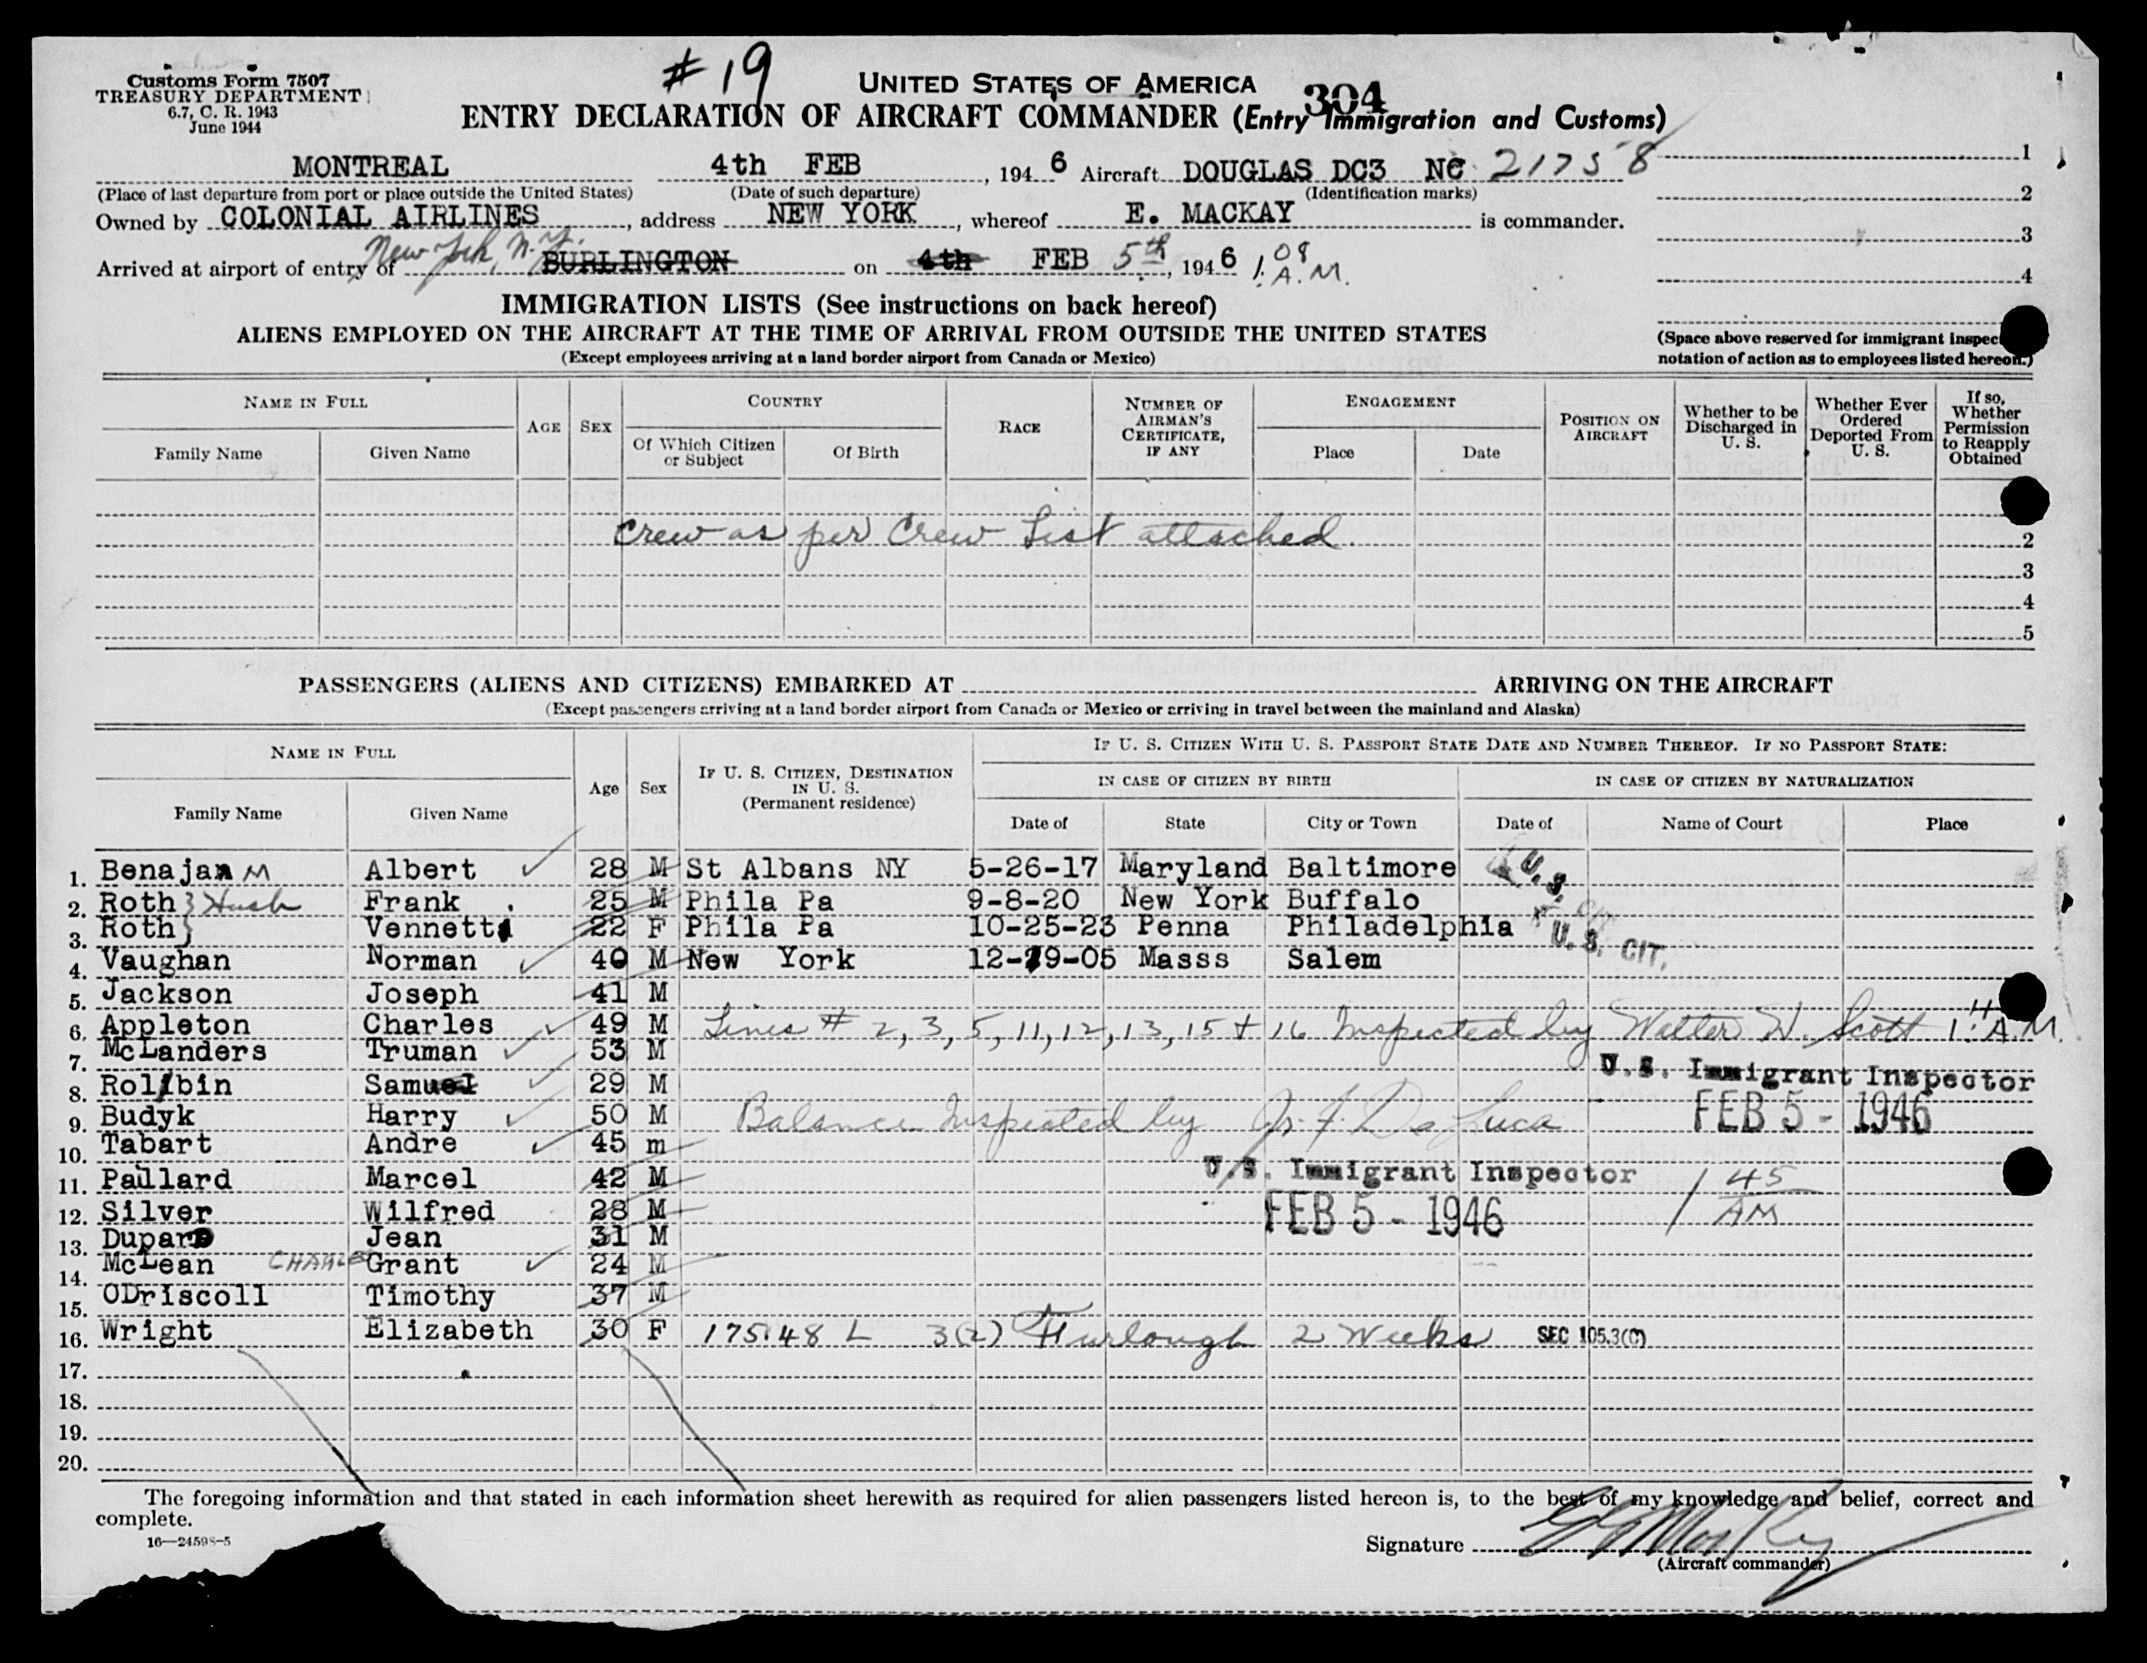 Customs Form 7507
TREASURY DEPARTMENT
6.7, C. R. 1943
June 1944
# 19
UNITED STATES OF AMERICA
304
ENTRY DECLARATION OF AIRCRAFT COMMANDER (Entry Immigration and Customs)
MONTREAL 4th FEB, 1946 Aircraft DOUGLAS DC3 NC 21758
(Place of last departure from port or place outside the United States) (Date of such departure) (Identification marks)
Owned by COLONIAL AIRLINES, address NEW YORK, whereof E. MACKAY is commander.
New York, N.Y.
Arrived at airport of entry of BURLINGTON on 4th FEB 5th, 1946 1:08 A.M.
1
2
3
4
(Space above reserved for immigrant inspec
notation of action as to employees listed hereon.)
IMMIGRATION LISTS (See instructions on back hereof)
ALIENS EMPLOYED ON THE AIRCRAFT AT THE TIME OF ARRIVAL FROM OUTSIDE THE UNITED STATES
(Except employees arriving at a land border airport from Canada or Mexico)
NAME IN FULL AGE SEX COUNTRY RACE NUMBER OF AIRMAN'S CERTIFICATE, IF ANY ENGAGEMENT POSITION ON AIRCRAFT Whether to be Discharged in U. S. Whether Ever Ordered Deported From U. S. If so, Whether Permission to Reapply Obtained
Family Name Given Name Of Which Citizen or Subject Of Birth Place Date
Crew as per Crew List attached
2
3
4
5
PASSENGERS (ALIENS AND CITIZENS) EMBARKED AT ARRIVING ON THE AIRCRAFT
(Except passengers arriving at a land border airport from Canada or Mexico or arriving in travel between the mainland and Alaska)
NAME IN FULL Age Sex IF U. S. CITIZEN, DESTINATION IN U. S. (Permanent residence) IF U. S. CITIZEN WITH U. S. PASSPORT STATE DATE AND NUMBER THEREOF. IF NO PASSPORT STATE:
IN CASE OF CITIZEN BY BIRTH IN CASE OF CITIZEN BY NATURALIZATION
Family Name Given Name Date of State City or Town Date of Name of Court Place
1. Benajam M Albert 28 M St Albans NY 5-26-17 Maryland Baltimore U. S. CIT.
2. Roth } Husb Frank 25 M Phila Pa 9-8-20 New York Buffalo
3. Roth } Vennett 22 F Phila Pa 10-25-23 Penna Philadelphia U. S. CIT.
4. Vaughan Norman 40 M New York 12-19-05 Masss Salem
5. Jackson Joseph 41 M
6. Appleton Charles 49 M Lines # 2, 3, 5, 11, 12, 13, 15 + 16 Inspected by Walter H. Scott A.M.
7. McLanders Truman 53 M U. S. Immigrant Inspector
8. Rolbin Samuel 29 M FEB 5 - 1946
9. Budyk Harry 50 M Balance Inspected by De Luca
10. Tabart Andre 45 m
11. Paillard Marcel 42 M U. S. Immigrant Inspector 1 45 AM
12. Silver Wilfred 28 M FEB 5 - 1946
13. Dupard Jean 31 M
14. McLean CHARLES Grant 24 M
15. ODriscoll Timothy 37 M
16. Wright Elizabeth 30 F 175.48 L 3(2) Furlough 2 Weeks SEC 105.3(C)
17.
18.
19.
20.
The foregoing information and that stated in each information sheet herewith as required for alien passengers listed hereon is, to the best of my knowledge and belief, correct and
complete.
16—24598-5
Signature
(Aircraft commander)